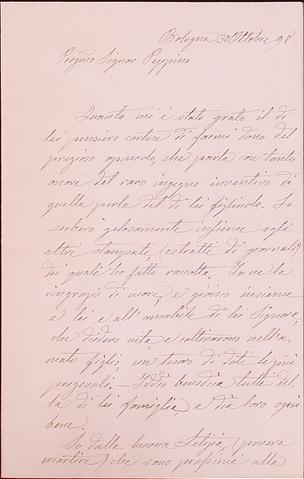 Bologna 30 Ottobre 98
Preg.mo Signor Peppino
Quanto mi è stato grato il di
lei pensiero cortese di farmi dono del
prezioso opuscolo, che parla con tanto
onore del raro ingegno inventivo di
quella perla del di lei figliuolo. Lo
serberò gelosamente insieme agli
altri stampati, (estratti di giornali)
dei quali ho fatto raccolta. Io ne la
ringrazio di cuore, e gioisco insieme
a lei e all'amabile di lei Signora,
che diedero vita, e coltivarono nell'a-
mato figlio, un tesoro di doti le più
pregevoli. — Iddio benedica tutti del
la di lei famiglia, e dia loro ogni
bene.
So dalla buona (povera
martire) che sono prossimi alla